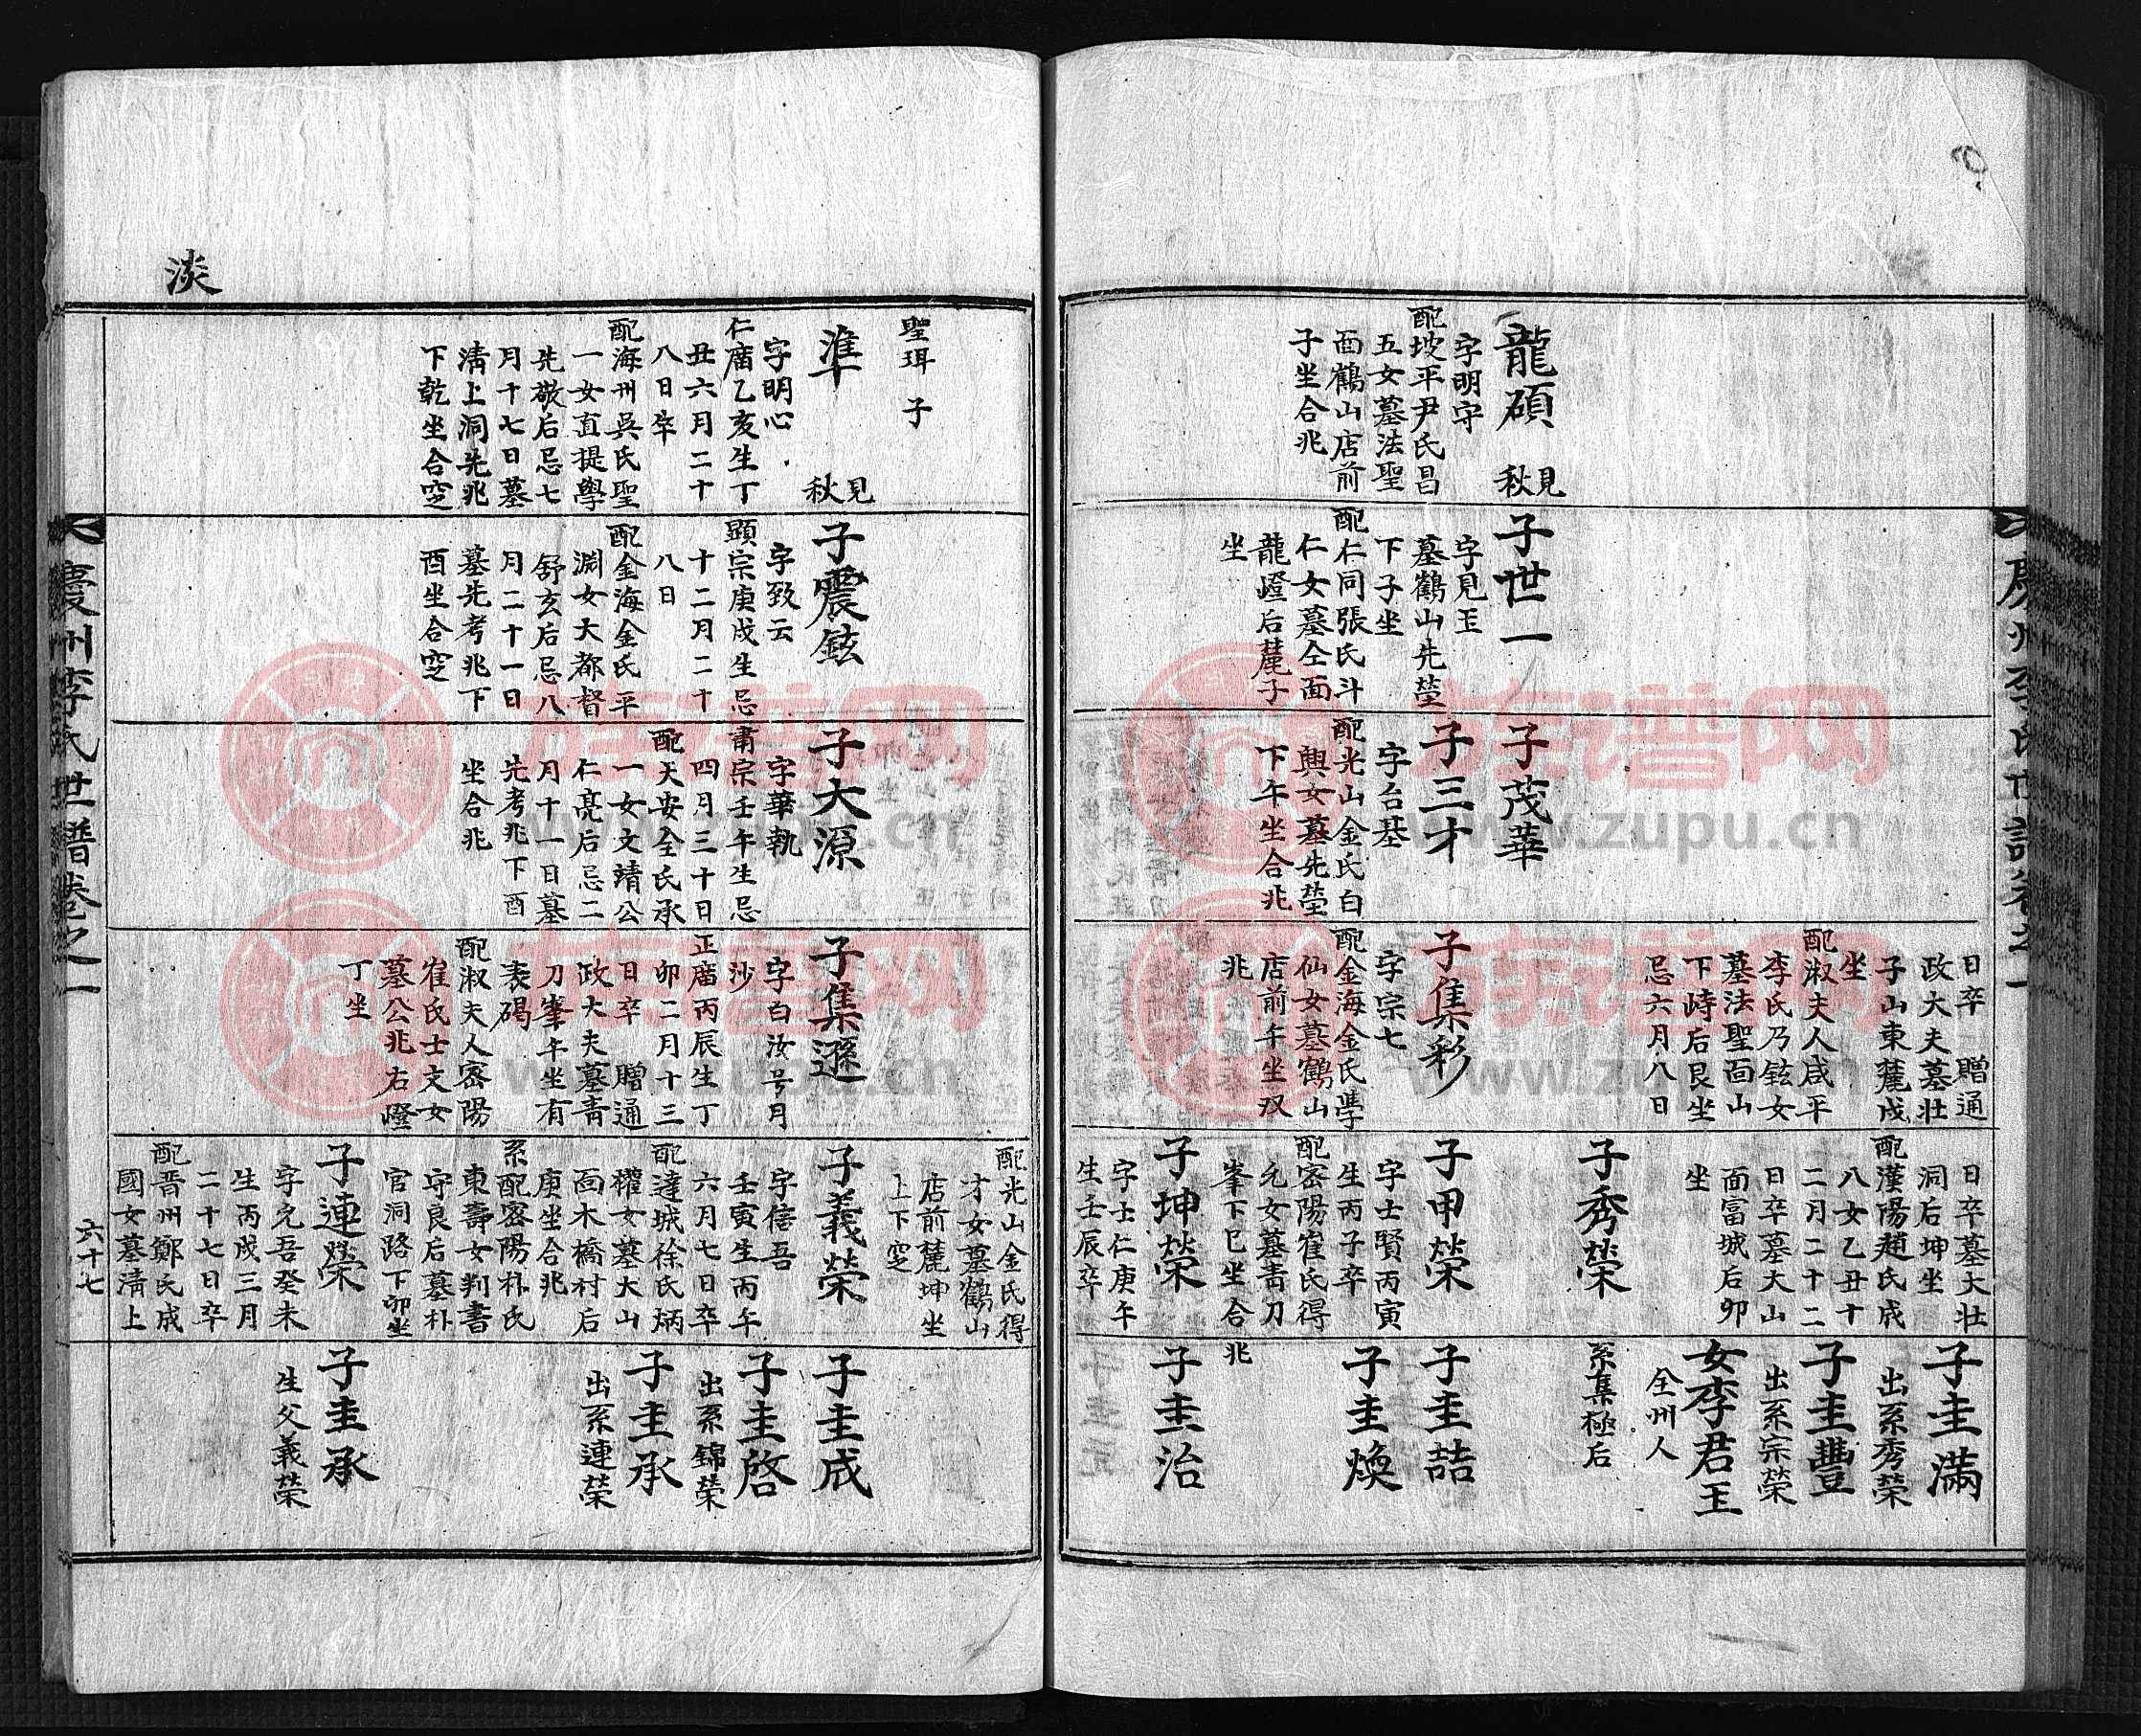 慶州李氏世譜卷之一
龍碩
見秋
字明守
配坡平尹氏昌
五女墓法聖
面鶴山店前
子坐合兆
子世一
字見玉
墓鶴山先塋
下子坐
配仁同張氏斗
仁女墓仝面
龍嶝后麓子
坐
子茂華
子三才
字台基
配光山金氏白
興女墓先塋
下午坐合兆
日卒 贈通
政大夫墓壮
子山東麓戌
坐
配淑夫人咸平
李氏乃鉉女
墓法聖面山
下峙后艮坐
忌六月八日
子集彩
字宗七
配金海金氏學
仙女墓鶴山
店前午坐双
兆
日卒墓大壮
洞后坤坐
配漢陽趙氏成
八女乙丑十
二月二十二
日卒墓大山
面富城后卯
坐
子秀榮
子甲榮
字士賢丙寅
生丙子卒
配密陽崔氏得
允女墓靑刀
峯下巳坐合
兆
子坤榮
字士仁庚午
生壬辰卒
子圭滿
出系秀榮
子圭豐
出系宗榮
女李君玉
全州人
系集極后
子圭喆
子圭煥
子圭治
淡
聖珥子
準
見秋
字明心
仁廟乙亥生丁
丑六月二十
八日卒
配海州吳氏聖
一女直提學
先敬后忌七
月十七日墓
清上洞先兆
下乾坐合窆
子震鉉
字致云
顯宗庚戌生忌
十二月二十
八日
配金海金氏平
淵女大都督
舒玄后忌八
月二十一日
墓先考兆下
酉坐合窆
子大源
字華執
肅宗壬午生忌
四月三十日
配天安全氏承
一女文靖公
仁亮后忌二
月十一日墓
先考兆下酉
坐合兆
子集遜
字白汝号月
沙
正廟丙辰生丁
卯二月十三
日卒 贈通
政大夫墓靑
刀峯午坐有
表碣
配淑夫人密陽
崔氏士文女
墓公兆右嶝
丁坐
配光山金氏得
才女墓鶴山
店前麓坤坐
上下窆
子義榮
字信吾
壬寅生丙午
六月七日卒
配達城徐氏炳
權女墓大山
面木橋村后
庚坐合兆
系配密陽朴氏
東壽女判書
守良后墓朴
官洞路下卯坐
子連榮
字允吾癸未
生丙戌三月
二十七日卒
配晋州鄭氏成
國女墓清上
子圭成
子圭啓
出系錦榮
子圭承
出系連榮
子圭承
生父義榮
慶州李氏世譜卷之一
六十七
族谱网
www.zupu.cn
族谱网
www.zupu.cn
族谱网
www.zupu.cn
族谱网
www.zupu.cn